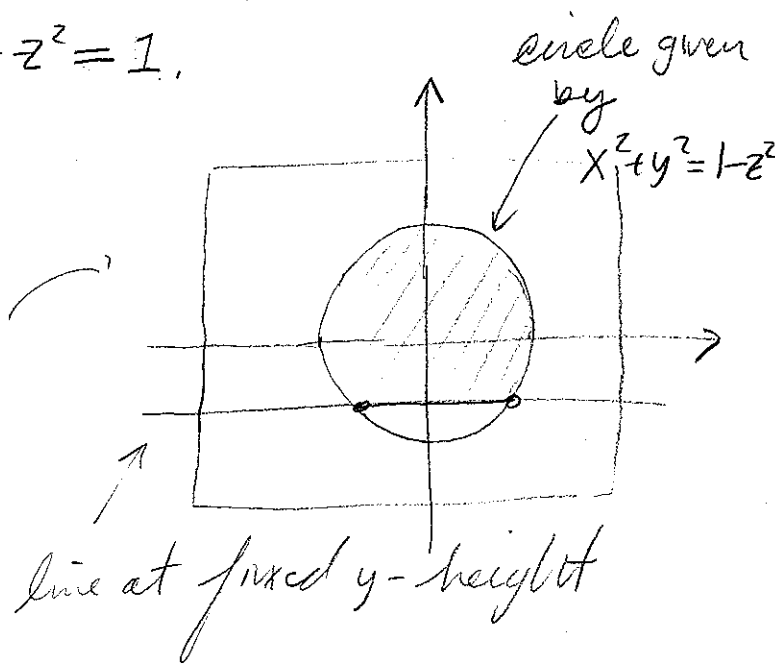 - z² = 1.
circle given
by
x² + y² = 1 - z²
line at fixed y-height